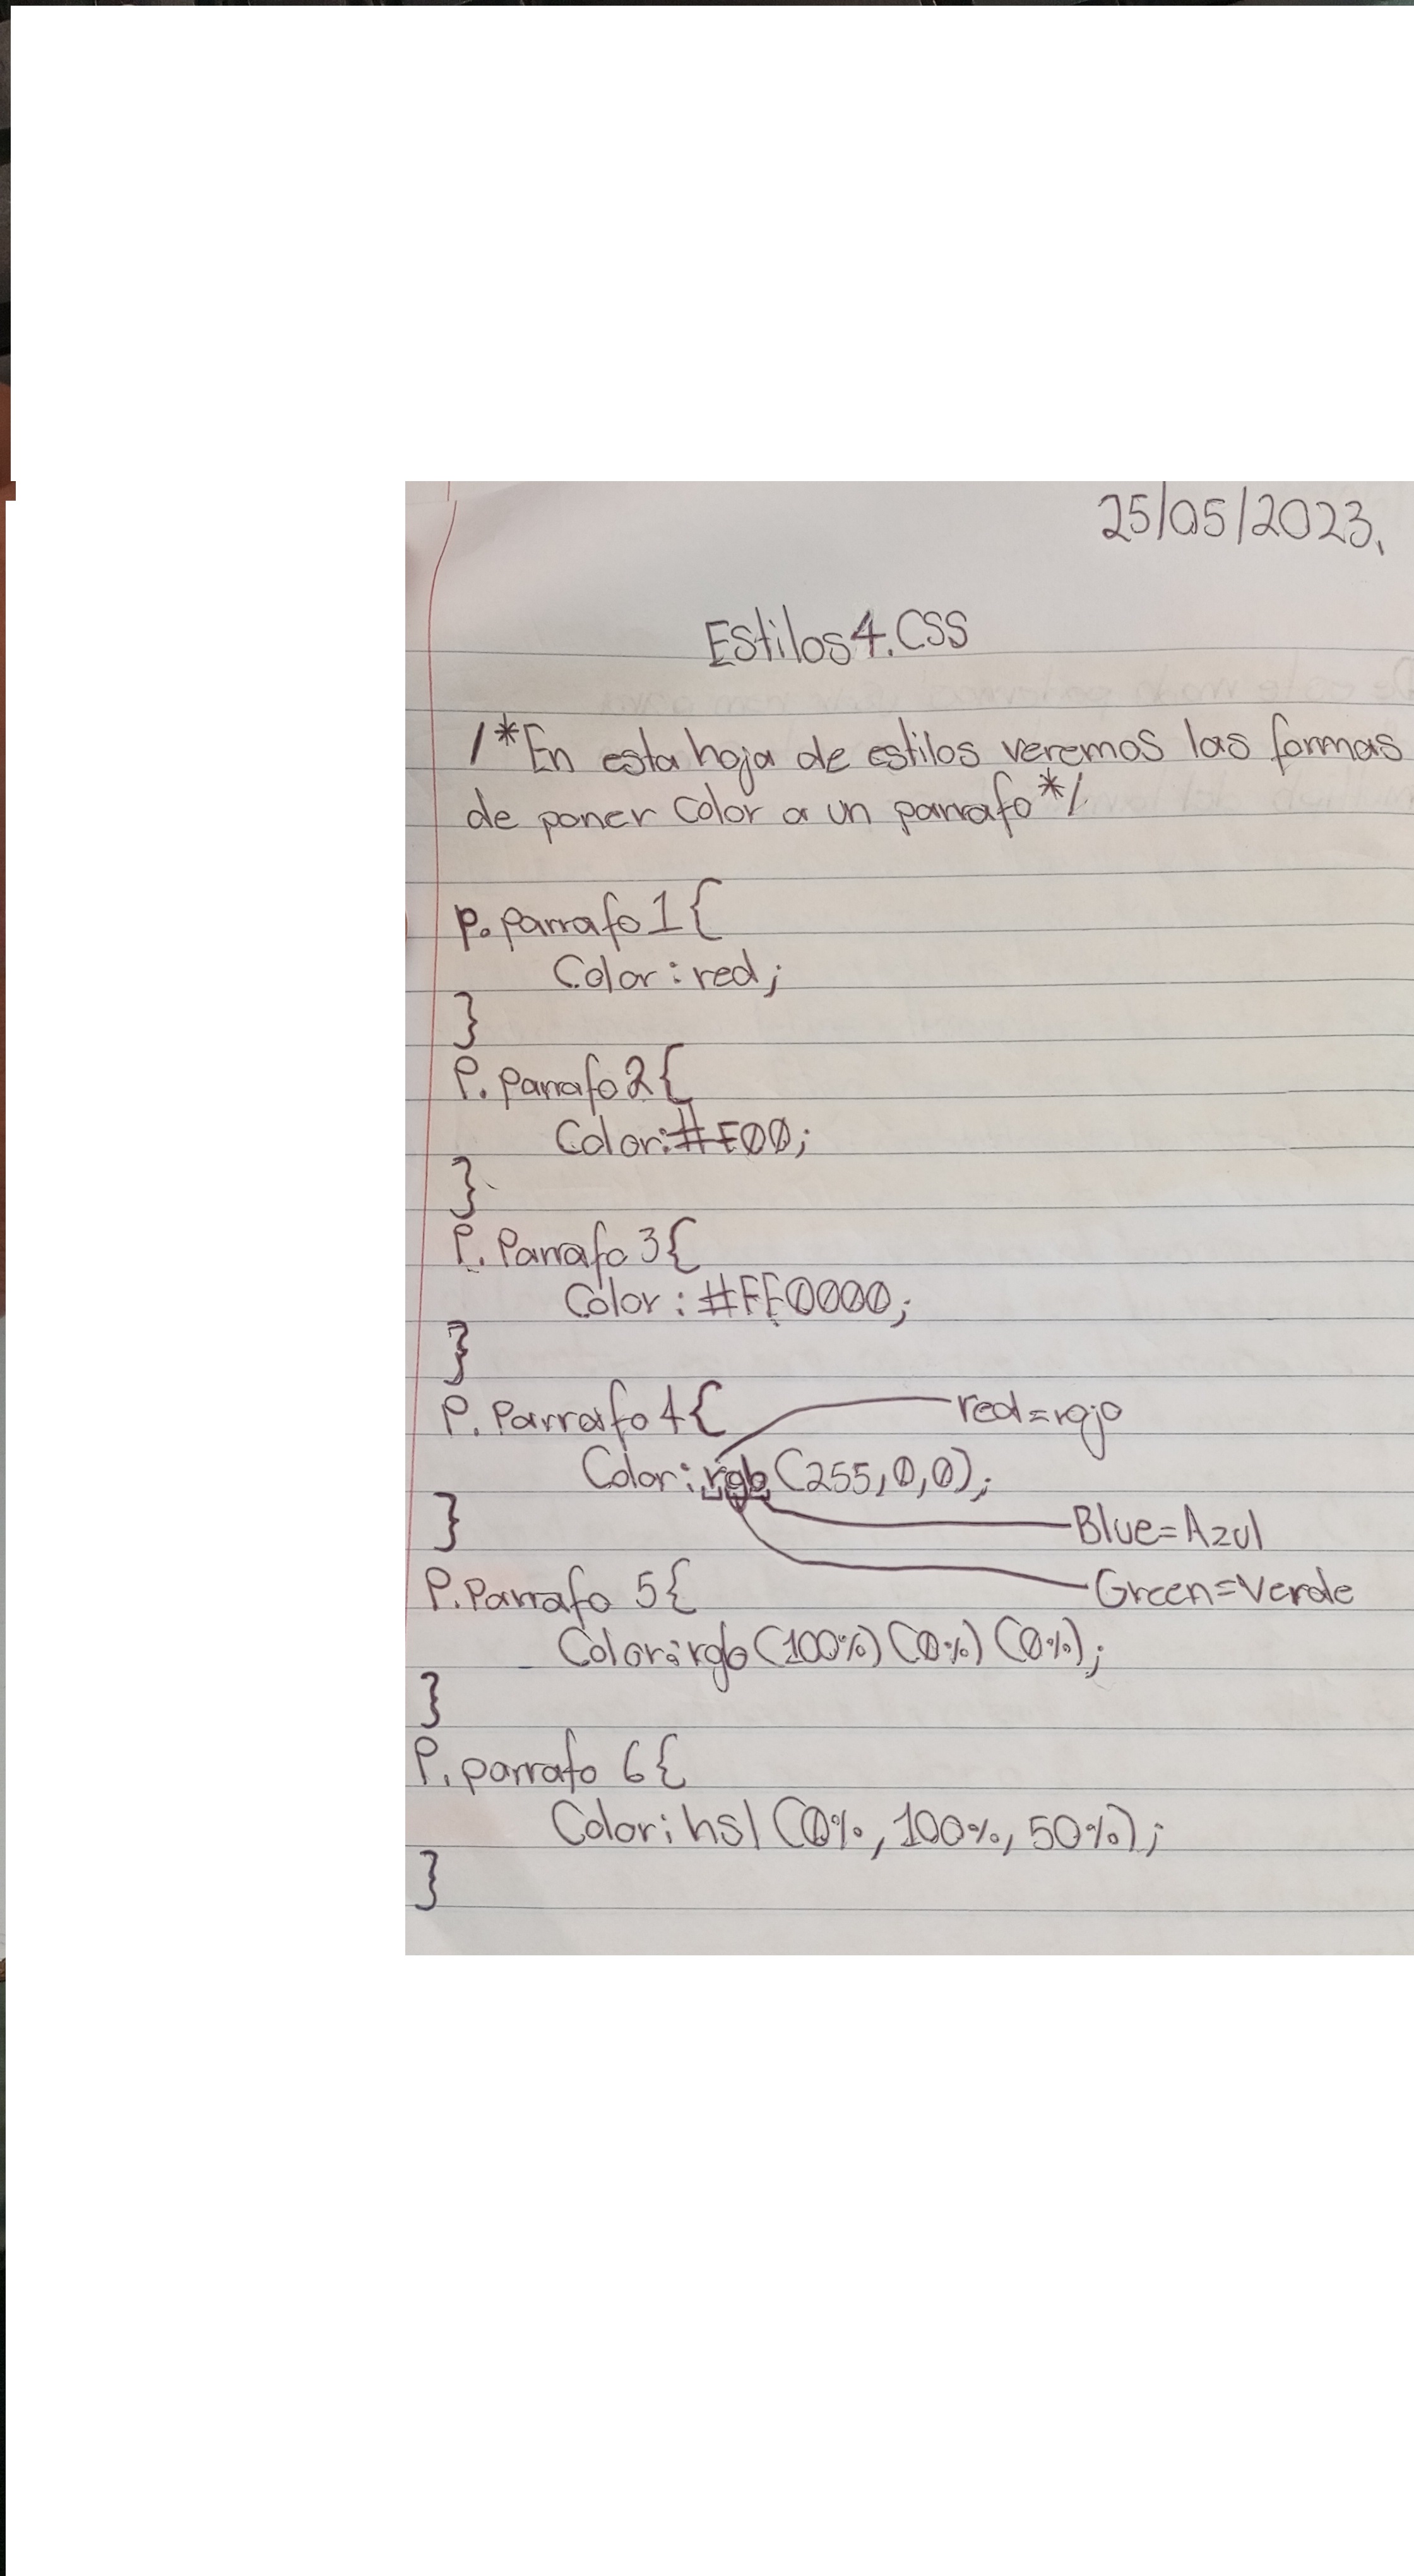 25/05/2023.
Estilos4.CSS
/*En esta hoja de estilos veremos las formas
de poner color a un parrafo*/
p.parrafo1{
Color:red;
}
P.parrafo2{
Color:#F00;
}
P.Parrafo3{
Color:#FF0000;
}
P.Parrafo4{
red=rojo
Color:rgb(255,0,0);
}
Blue=Azul
P.Parrafo 5{
Green=Verde
Color:rgb(100%)(0%)(0%);
}
P.parrafo 6{
Color:hsl(0%,100%,50%);
}